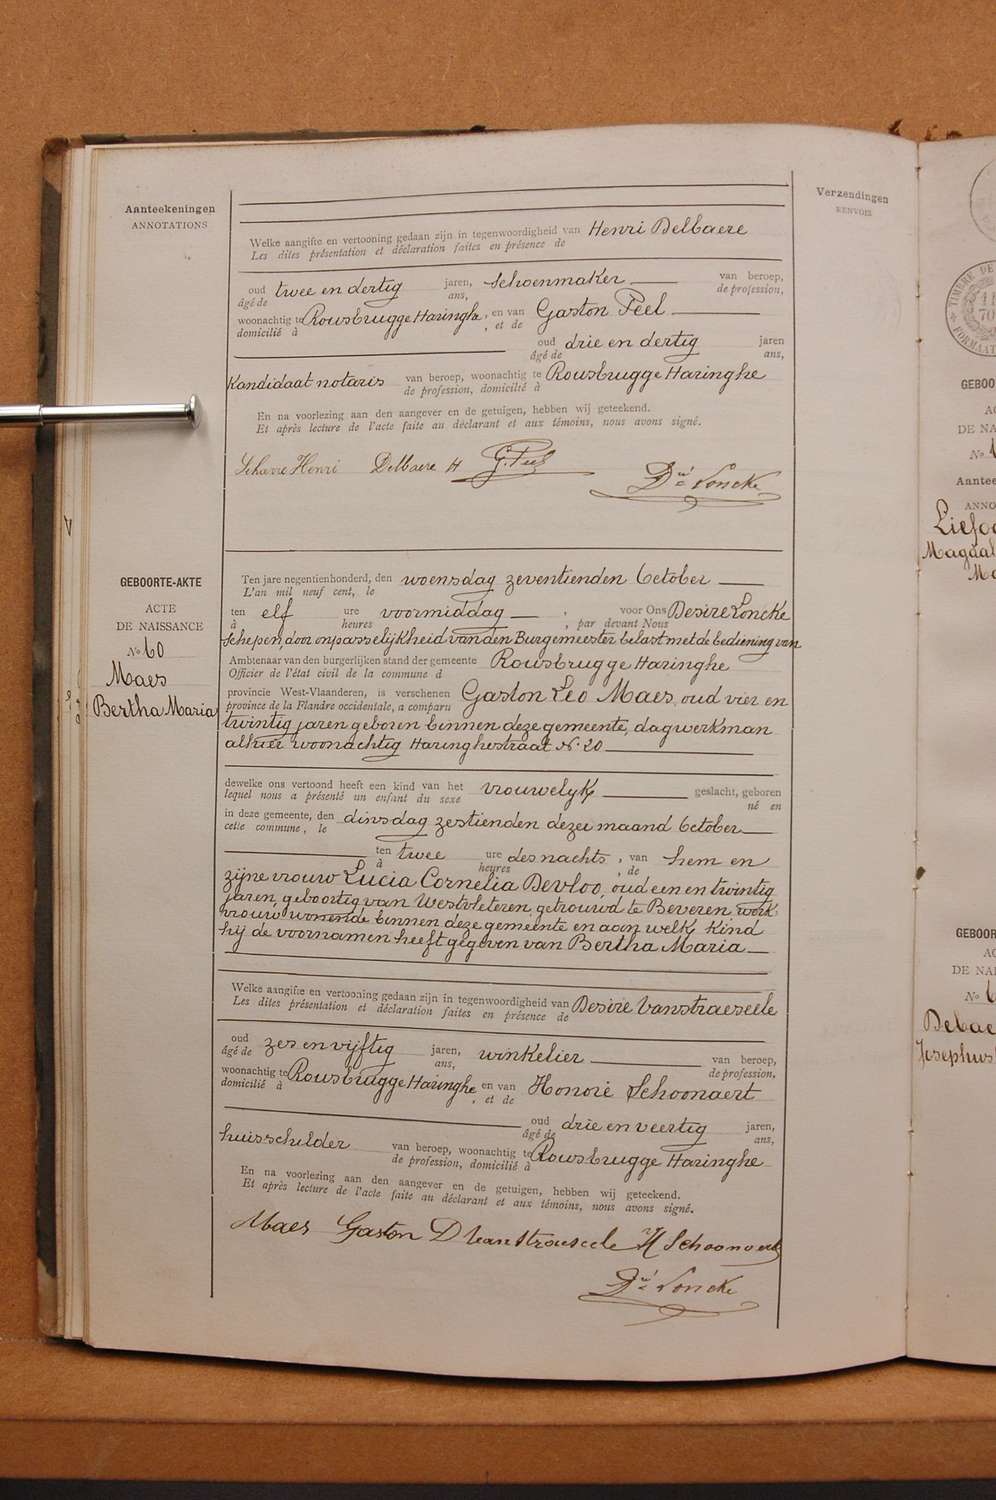 Aanteekeningen
ANNOTATIONS
Verzendingen
RENVOIS
Welke aangifte en vertooning gedaan zijn in tegenwoordigheid van Henri Delbaere
Les dites présentation et déclaration faites en présence de
oud twee en dertig jaren, schoenmaker van beroep,
âgé de ans, de profession,
woonachtig te Rousbrugge Haringhe, en van Gaston Peel
domicilié à , et de
oud drie en dertig jaren
âgé de ans,
Kandidaat notaris van beroep, woonachtig te Rousbrugge Haringhe
de profession, domicilié à
En na voorlezing aan den aangever en de getuigen, hebben wij geteekend.
Et après lecture de l'acte faite au déclarant et aux témoins, nous avons signé.
Henri Delbaere H G. Peel
Dré Loncke
V
GEBOORTE-AKTE
ACTE
DE NAISSANCE
No 60
Maes
Bertha Maria
Ten jare negentienhonderd, den woensdag zeventienden October
L'an mil neuf cent, le
ten elf ure voormiddag , voor Ons Desiré Loncke
à heures , par devant Nous
schepen, door onpasselijkheid van den Burgemeester belast met de bediening van
Ambtenaar van den burgerlijken stand der gemeente Rousbrugge Haringhe
Officier de l'état civil de la commune d
provincie West-Vlaanderen, is verschenen Gaston Leo Maes, oud vier en
province de la Flandre occidentale, a comparu
twintig jaren geboren binnen deze gemeente, dagwerkman
alhier woonachtig Haringhestraat No 20
dewelke ons vertoond heeft een kind van het vrouwelyk geslacht, geboren
lequel nous a présenté un enfant du sexe né en
in deze gemeente, den dinsdag zestienden dezer maand October
cette commune, le
ten twee ure des nachts , van hem en
à heures , de
zijne vrouw Lucia Cornelia Devloo, oud een en twintig
jaren, geboortig van Westvleteren, getrouwd te Beveren, werk
vrouw wonende binnen deze gemeente en aan welk kind
hij de voornamen heeft gegeven van Bertha Maria
Welke aangifte en vertooning gedaan zijn in tegenwoordigheid van Desiré Vanstraeseele
Les dites présentation et déclaration faites en présence de
oud zes en vijftig jaren, winkelier van beroep,
âgé de ans, de profession,
woonachtig te Rousbrugge Haringhe en van Honoré Schoonaert
domicilié à , et de
oud drie en veertig jaren,
âgé de ans,
huisschilder van beroep, woonachtig te Rousbrugge Haringhe
de profession, domicilié à
En na voorlezing aan den aangever en de getuigen, hebben wij geteekend.
Et après lecture de l'acte faite au déclarant et aux témoins, nous avons signé.
Maes Gaston D Vanstraeseele H Schoonaert
Dré Loncke
TIMBRE DE
FORMAAT
GEBOO
AC
DE NA
No
Aantee
ANNO
Liefoo
Magdal
Ma
GEBOOR
AC
DE NAI
No 6
Debae
Josephus